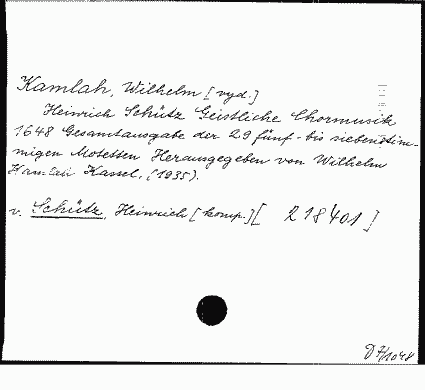 Kamlah, Wilhelm [vyd.]
Heinrich Schütz Geistliche Chormusik
1648 Gesamtausgabe der 29 fünf- bis siebenstim-
migen Motetten Herausgegeben von Wilhelm
Kamlah Kassel, (1935).
v. Schütz, Heinrich [komp.] [ 218401 ]
D 7/1048